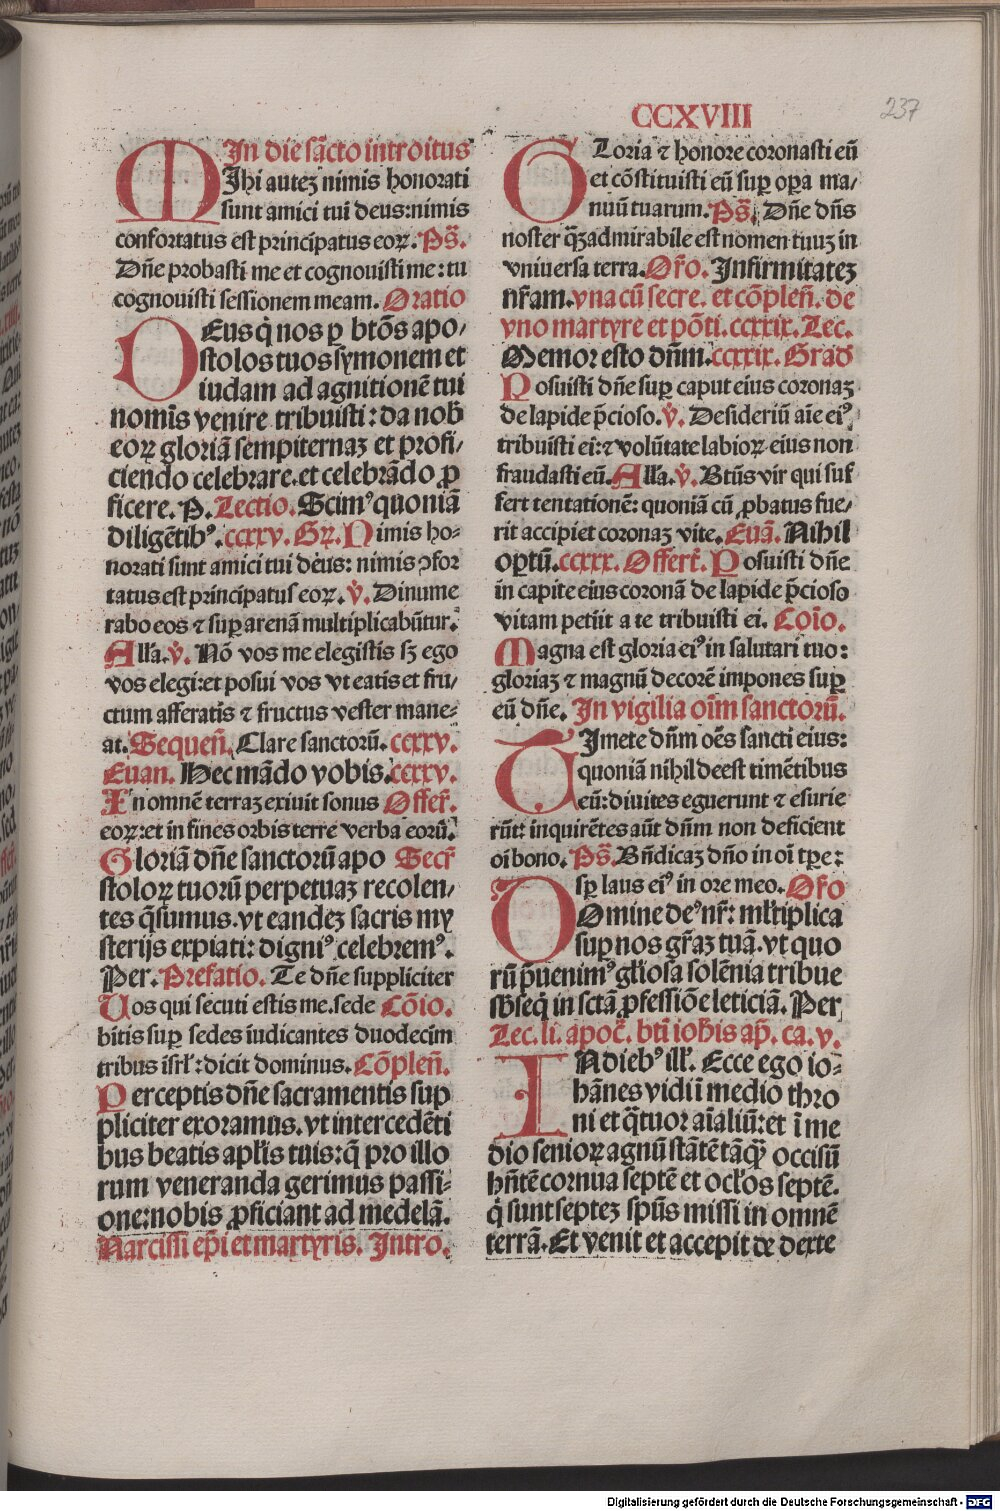 CCXVIII
237
In die sãcto introitus
MIhi auteʒ nimis honorati
sunt amici tui deus: nimis
confortatus est principatus eoꝝ. Ps̃.
Dñe probasti me et cognouisti me: tu
cognouisti sessionem meam. Oratio
DEus q̇ nos ꝑ btõs apo-
stolos tuos symonem et
iudam ad agnitionẽ tui
nomĩs venire tribuisti: da nob̃
eoꝝ gloriã sempiternaʒ et profi-
ciendo celebrare. et celebrãdo ꝓ
ficere. P. Lectio. Scimꝰ quoniã
diligẽtibꝰ. ccxxv. Gꝝ. Nimis ho-
norati sunt amici tui deus: nimis ↄfor
tatus est principatus eoꝝ. v̇. Dinume
rabo eos ⁊ suꝑ arenã multiplicabũtur.
Alla. v̇. Nõ vos me elegistis sʒ ego
vos elegi: et posui vos vt eatis et fru-
ctum afferatis ⁊ fructus vester mane-
at. Sequeñ. Clare sanctorũ. ccxxv.
Euan. Hec mãdo vobis. ccxxv.
In omnẽ terraʒ exiuit sonus Offer̃.
eoꝝ: et in fines orbis terre verba eorũ.
Gloriã dñe sanctorũ apo Secr̃
stoloꝝ tuorũ perpetuaʒ recolen-
tes q̃sumus. vt eandeʒ sacris my
sterijs expiati: digniꝰ celebremꝰ.
Per. Prefatio. Te dñe suppliciter
Uos qui secuti estis me. sede Cõio.
bitis suꝑ sedes iudicantes duodecim
tribus isrl̃: dicit dominus. Cõpleñ.
Perceptis dñe sacramentis sup
pliciter exoramus. vt intercedẽti
bus beatis apl̃is tuis: q̃ pro illo
rum veneranda gerimus passi-
one: nobis ꝓficiant ad medelã.
Narcissi ep̃i et martyris. Intro.
GLoria ⁊ honore coronasti eũ
et cõstituisti eũ suꝑ oꝑa ma-
nuũ tuarum. Ps̃. Dñe dñs
noster q̃ʒ admirabile est nomen tuuʒ in
vniuersa terra. Or̃o. Infirmitateʒ
nr̃am. vna cũ secre. et cõpleñ. de
vno martyre et põti. ccxxix. Lec.
Memor esto dñm. ccxxix. Grad̃
Posuisti dñe suꝑ caput eius coronaʒ
de lapide p̃cioso. v̇. Desideriũ aĩe eiꝰ
tribuisti ei: ⁊ volũtate labioꝝ eius non
fraudasti eũ. Alla. v̇. Btũs vir qui suf
fert tentationẽ: quoniã cũ ꝓbatus fue-
rit accipiet coronaʒ vite. Euã. Nihil
oꝑtũ. ccxxx. Offert̃. Posuisti dñe
in capite eius coronã de lapide p̃cioso
vitam petiit a te tribuisti ei. Coĩo.
Magna est gloria eiꝰ in salutari tuo:
gloriaʒ ⁊ magnũ decorẽ impones suꝑ
eũ dñe. In vigilia oĩm sanctorũ.
TImete dñm oẽs sancti eius:
quoniã nihil deest timẽtibus
eũ: diuites eguerunt ⁊ esurie
rũt: inquirẽtes aũt dñm non deficient
oĩ bono. Ps̃. Bñdicaʒ dño in oĩ tꝑe:
sꝑ laus eiꝰ in ore meo. Or̃o
DOmine deꝰ nr̃: ml̃tiplica
suꝑ nos gr̃aʒ tuã. vt quo
rũ p̃uenimꝰ gl̃iosa solẽnia tribue
sb̃seq̇ in sctã ꝓfessiõe leticiã. Per
Lec. li. apoc̃. bti ioh̃is ap̃. ca. v.
IN diebꝰ ill̃. Ecce ego io-
hãnes vidi ĩ medio thro
ni et q̃tuor aĩaliũ: et ĩ me
dio senioꝝ agnũ stãtẽ tãq̃ꝫ occisũ
hñtẽ cornua septẽ et ocl̃os septẽ.
q̇ sunt septeʒ sp̃us missi in omnẽ
terrã. Et venit et accepit de dexte
Digitalisierung gefördert durch die Deutsche Forschungsgemeinschaft - DFG